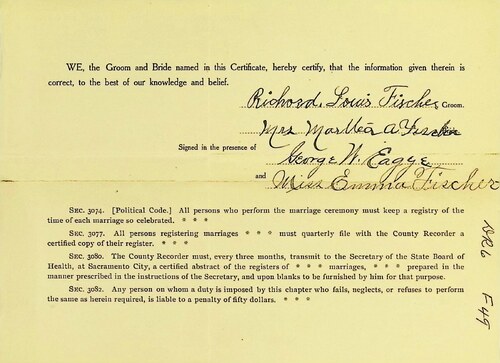 WE, the Groom and Bride named in this Certificate, hereby certify, that the information given therein is
correct, to the best of our knowledge and belief.
Richard Louis Fischer Groom.
Mrs Martha A Fischer
Signed in the presence of
George W. Eagye
and Miss Emma Fischer
SEC. 3074. [Political Code.] All persons who perform the marriage ceremony must keep a registry of the
time of each marriage so celebrated. * * *
SEC. 3077. All persons registering marriages * * * must quarterly file with the County Recorder a
certified copy of their register. * * *
SEC. 3080. The County Recorder must, every three months, transmit to the Secretary of the State Board of
Health, at Sacramento City, a certified abstract of the registers of * * * marriages, * * * prepared in the
manner prescribed in the instructions of the Secretary, and upon blanks to be furnished by him for that purpose.
SEC. 3082. Any person on whom a duty is imposed by this chapter who fails, neglects, or refuses to perform
the same as herein required, is liable to a penalty of fifty dollars. * * *